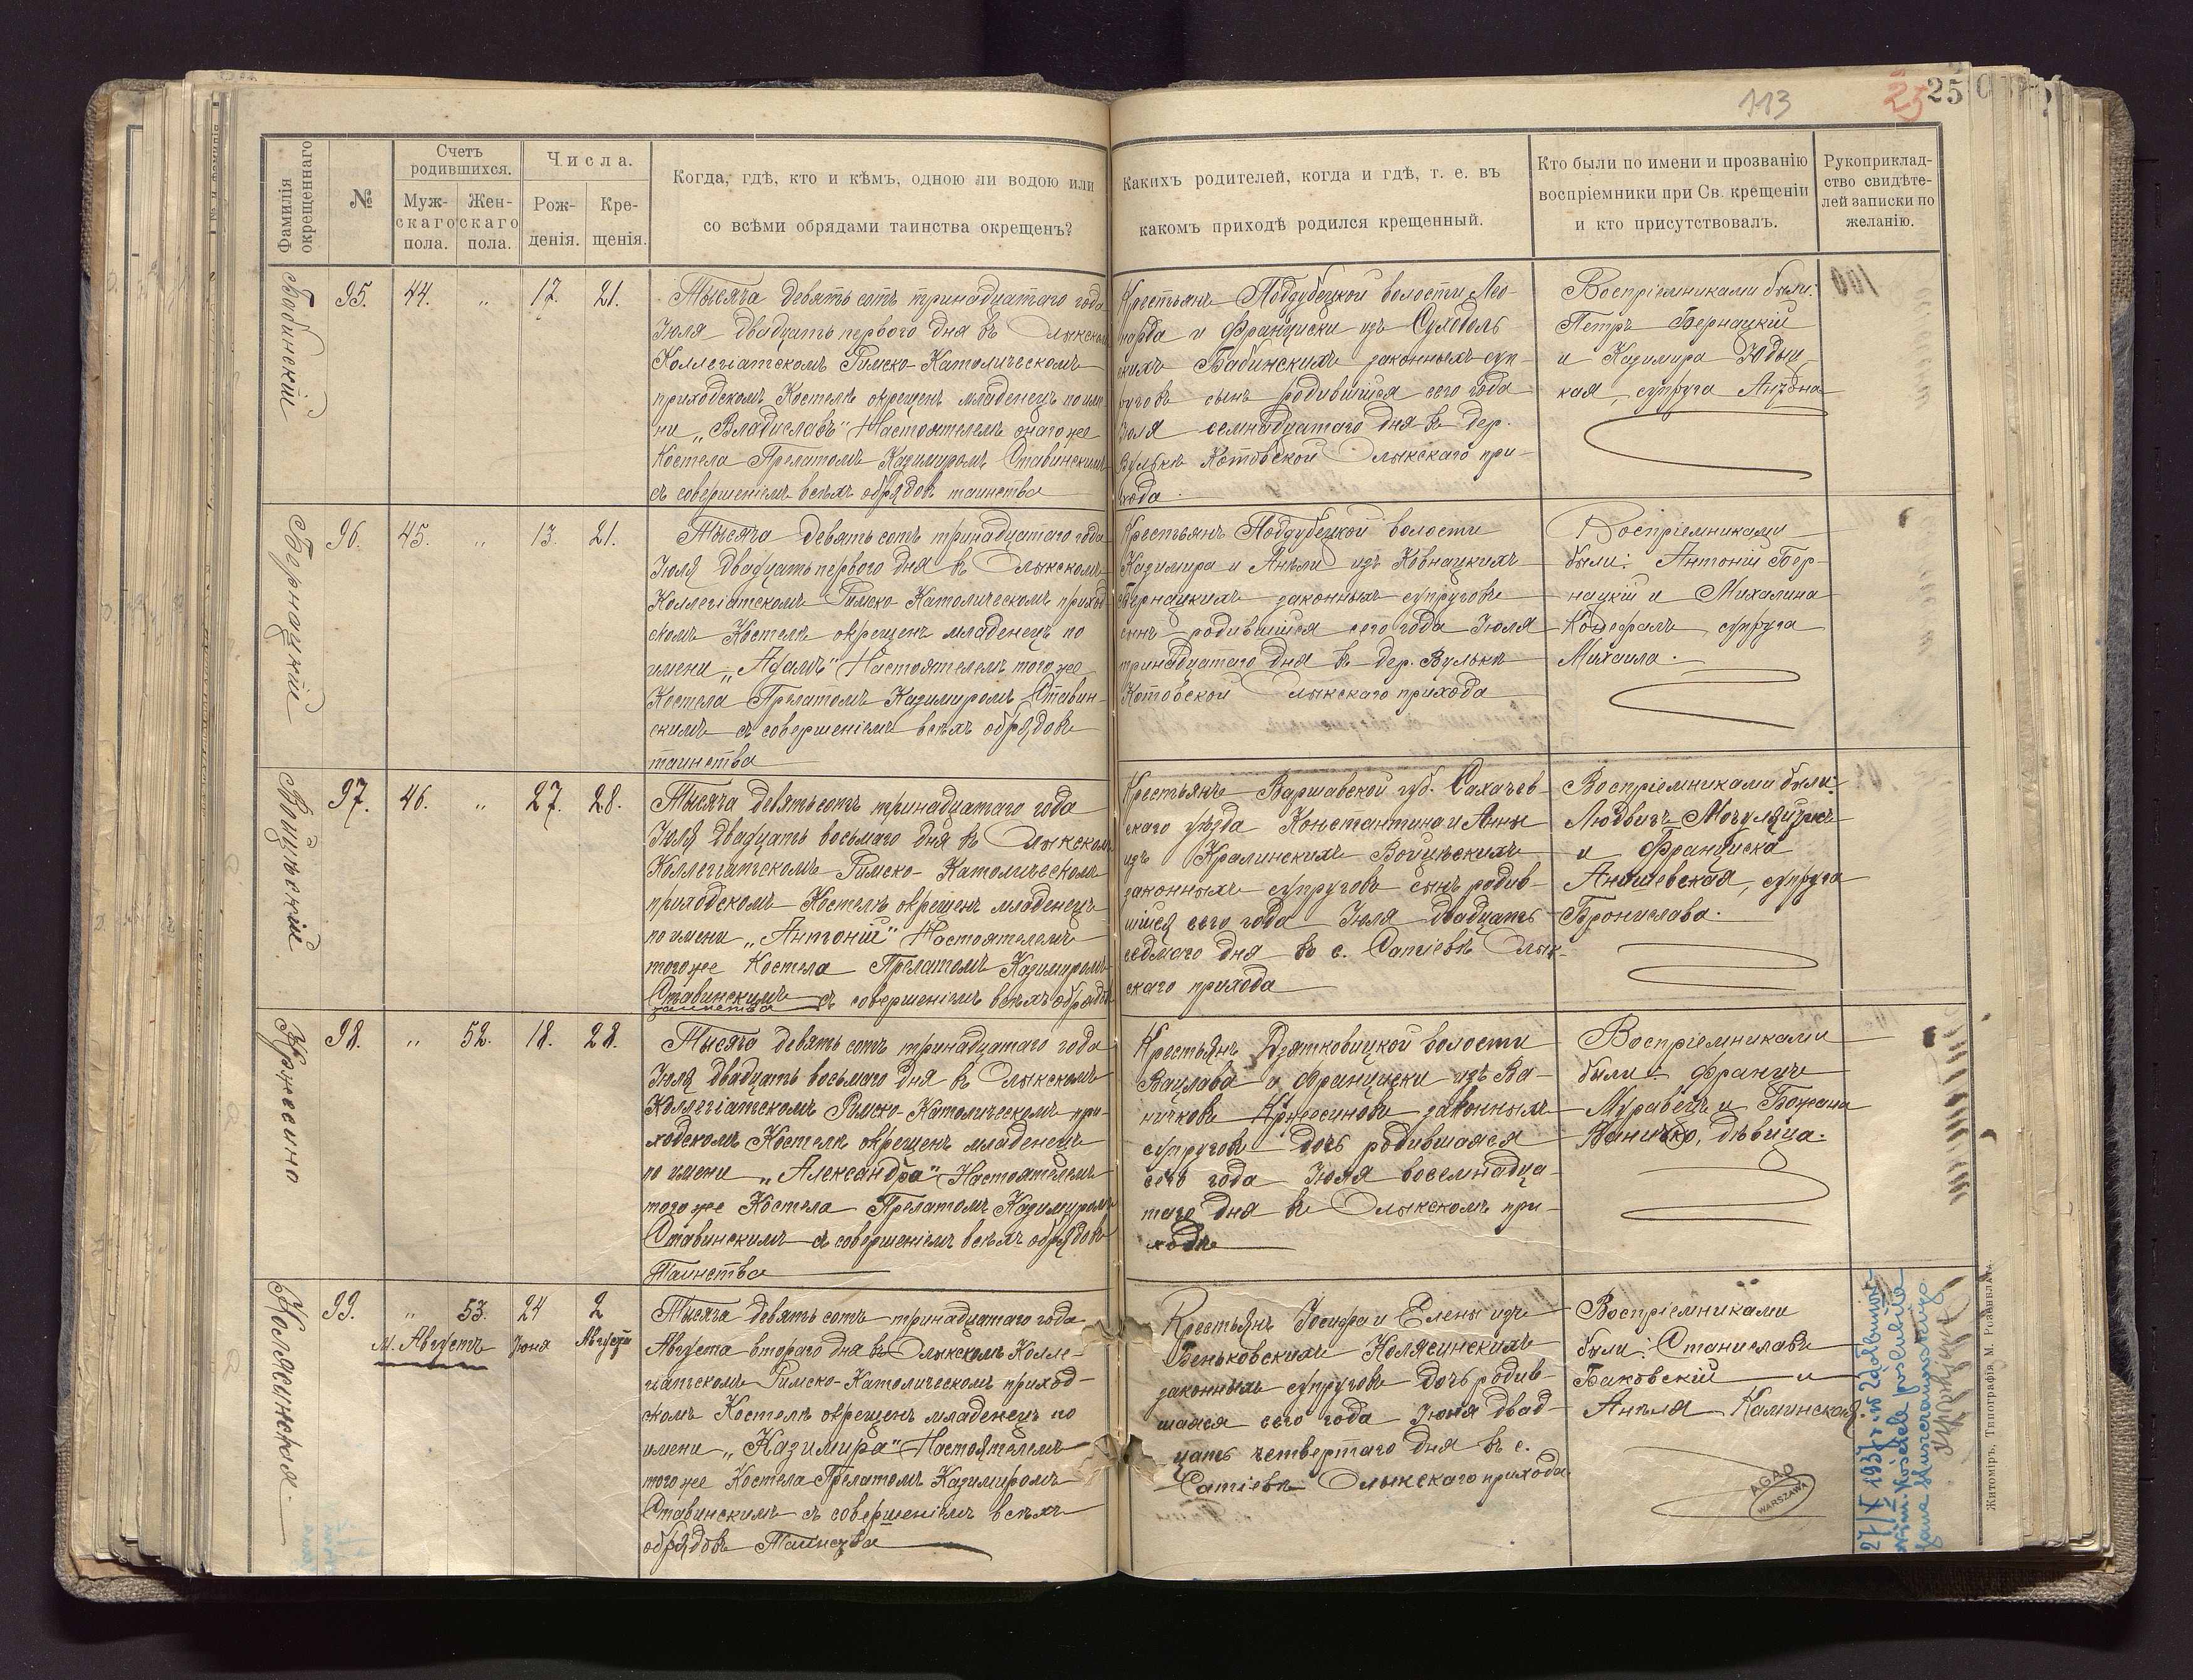 113
25
25
Фамилія окрещеннаго
№
Счетъ родившихся.
Муж-скаго пола.
Жен-скаго пола.
Числа.
Рож-денія.
Кре-щенія.
Когда, гдѣ, кто и кѣмъ, одною ли водою или
со всѣми обрядами таинства окрещенъ?
Какихъ родителей, когда и гдѣ, т. е. въ
какомъ приходѣ родился крещенный.
Кто были по имени и прозванію
воспріемники при Св. крещеніи
и кто присутствовалъ.
Рукоприклад-
ство свидѣте-
лей записки по
желанію.
Бабинскій
95. 44. " 17. 21.
Тысяча девятьсотъ тринадцатаго года
Іюля двадцать перваго дня въ Олыкскомъ
Коллегіатскомъ Римско-Католическомъ
приходскомъ Костелѣ окрещенъ младенецъ по име
ни „Владиславъ" Настоятелемъ онаго же
Костела Прелатомъ Казимиромъ Ставинскимъ
съ совершеніемъ всѣхъ обрядовъ таинства
Крестьянъ Поддубецкой волости Лео-
нарда и Франциски изъ Суходоль
скихъ Бабинскихъ законныхъ суп-
руговъ сынъ родившійся сего года
Іюля семнадцатаго дня въ дер.
Вулькѣ Котовской Олыкскаго при-
хода.
Воспріемниками были:
Петръ Бернацкій
и Казимира Юдыц-
кая, супруга Антона
Бернацкій
96. 45. " 13. 21.
Тысяча девятьсотъ тринадцатаго года
Іюля двадцать перваго дня въ Олыкскомъ
Коллегіатскомъ Римско-Католическомъ приход
скомъ Костелѣ окрещенъ младенецъ по
имени „Адамъ" Настоятелемъ того же
Костела Прелатомъ Казимиромъ Ставин-
скимъ съ совершеніемъ всѣхъ обрядовъ
таинства
Крестьянъ Поддубецкой волости
Казимира и Анѣли изъ Ковнацкихъ
Бернацкихъ законныхъ супруговъ
сынъ родившійся сего года Іюля
тринадцатаго дня въ дер. Вулькѣ
Котовской Олыкскаго прихода
Воспріемниками
были: Антоній Бер-
нацкій и Михалина
супруга
Михаила.
Войцѣскій
97. 46. " 27. 28.
Тысяча девятьсотъ тринадцатаго года
Іюля двадцать восьмаго дня въ Олыкскомъ
Коллегіатскомъ Римско-Католическомъ
приходскомъ Костелѣ окрещенъ младенецъ
по имени „Антоній" Настоятелемъ
того же Костела Прелатомъ Казимиромъ
Ставинскимъ съ совершеніемъ всѣхъ обрядовъ
таинства
Крестьянъ Варшавской губ. Сахачев-
скаго уѣзда Константина и Анны
изъ Кралинскихъ Войцѣскихъ
законныхъ супруговъ сынъ родив-
шійся сего года Іюля двадцать
седмаго дня въ с. Сатіевѣ Олык-
скаго прихода
Воспріемниками были:
Людвигъ
и Франциска
супруга
Бронислава.
98. " 52. 18. 28.
Тысяча девятьсотъ тринадцатаго года
Іюля двадцать восьмаго дня въ Олыкскомъ
Коллегіатскомъ Римско-Католическомъ при-
ходскомъ Костелѣ окрещенъ младенецъ
по имени „Александра" Настоятелемъ
того же Костела Прелатомъ Казимиромъ
Ставинскимъ съ совершеніемъ всѣхъ обрядовъ
Таинства
Крестьянъ Дятковицкой волости
Вацлава и Франциски изъ Ва-
ничковъ законныхъ
супруговъ дочь родившаяся
сего года Іюля восемнадца-
таго дня въ Олыкскомъ при-
ходѣ
Воспріемниками
были: Францъ
Муравецъ и Божена
Ваничко, дѣвица.
Колясинская.
99. " 53. 24 2
м. Августъ Іюня Августа
Тысяча девятьсотъ тринадцатаго года
Августа втораго дня въ Олыкскомъ Колле-
гіатскомъ Римско-Католическомъ приход-
скомъ Костелѣ окрещенъ младенецъ по
имени „Казимира" Настоятелемъ
того же Костела Прелатомъ Казимиромъ
Ставинскимъ съ совершеніемъ всѣхъ
обрядовъ Таинства
Крестьянъ Іосифа и Елены изъ
Беньковскихъ Колясинскихъ
законныхъ супруговъ дочь родив-
шаяся сего года Іюня двад-
цать четвертаго дня въ с.
Сатіевѣ Олыкскаго прихода
Воспріемниками
были: Станиславъ
Баковскій и
Анѣля Калинская.
27/X 1937 r. w Zdołbunow
AGAD
WARSZAWA
Житоміръ, Типографія М. Розенблата.